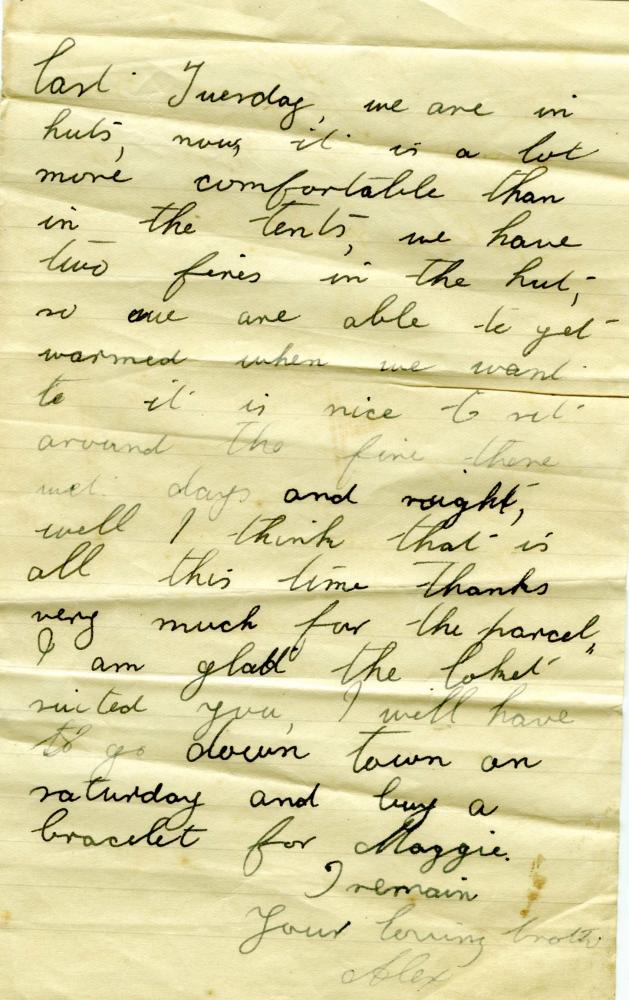 last Tuesday, we are in
huts, now, it is a lot
more comfortable than
in the tents, we have
two fires in the hut,
so we are able to get
warmed when we want
to it is nice to sit
around the fire these
wet days and night,
well I think that is
all this time thanks
very much for the parcel,
I am glad the loket
suited you, I will have
to go down town on
saturday and buy a
bracelet for Maggie.
I remain
Your loving brother
Alex